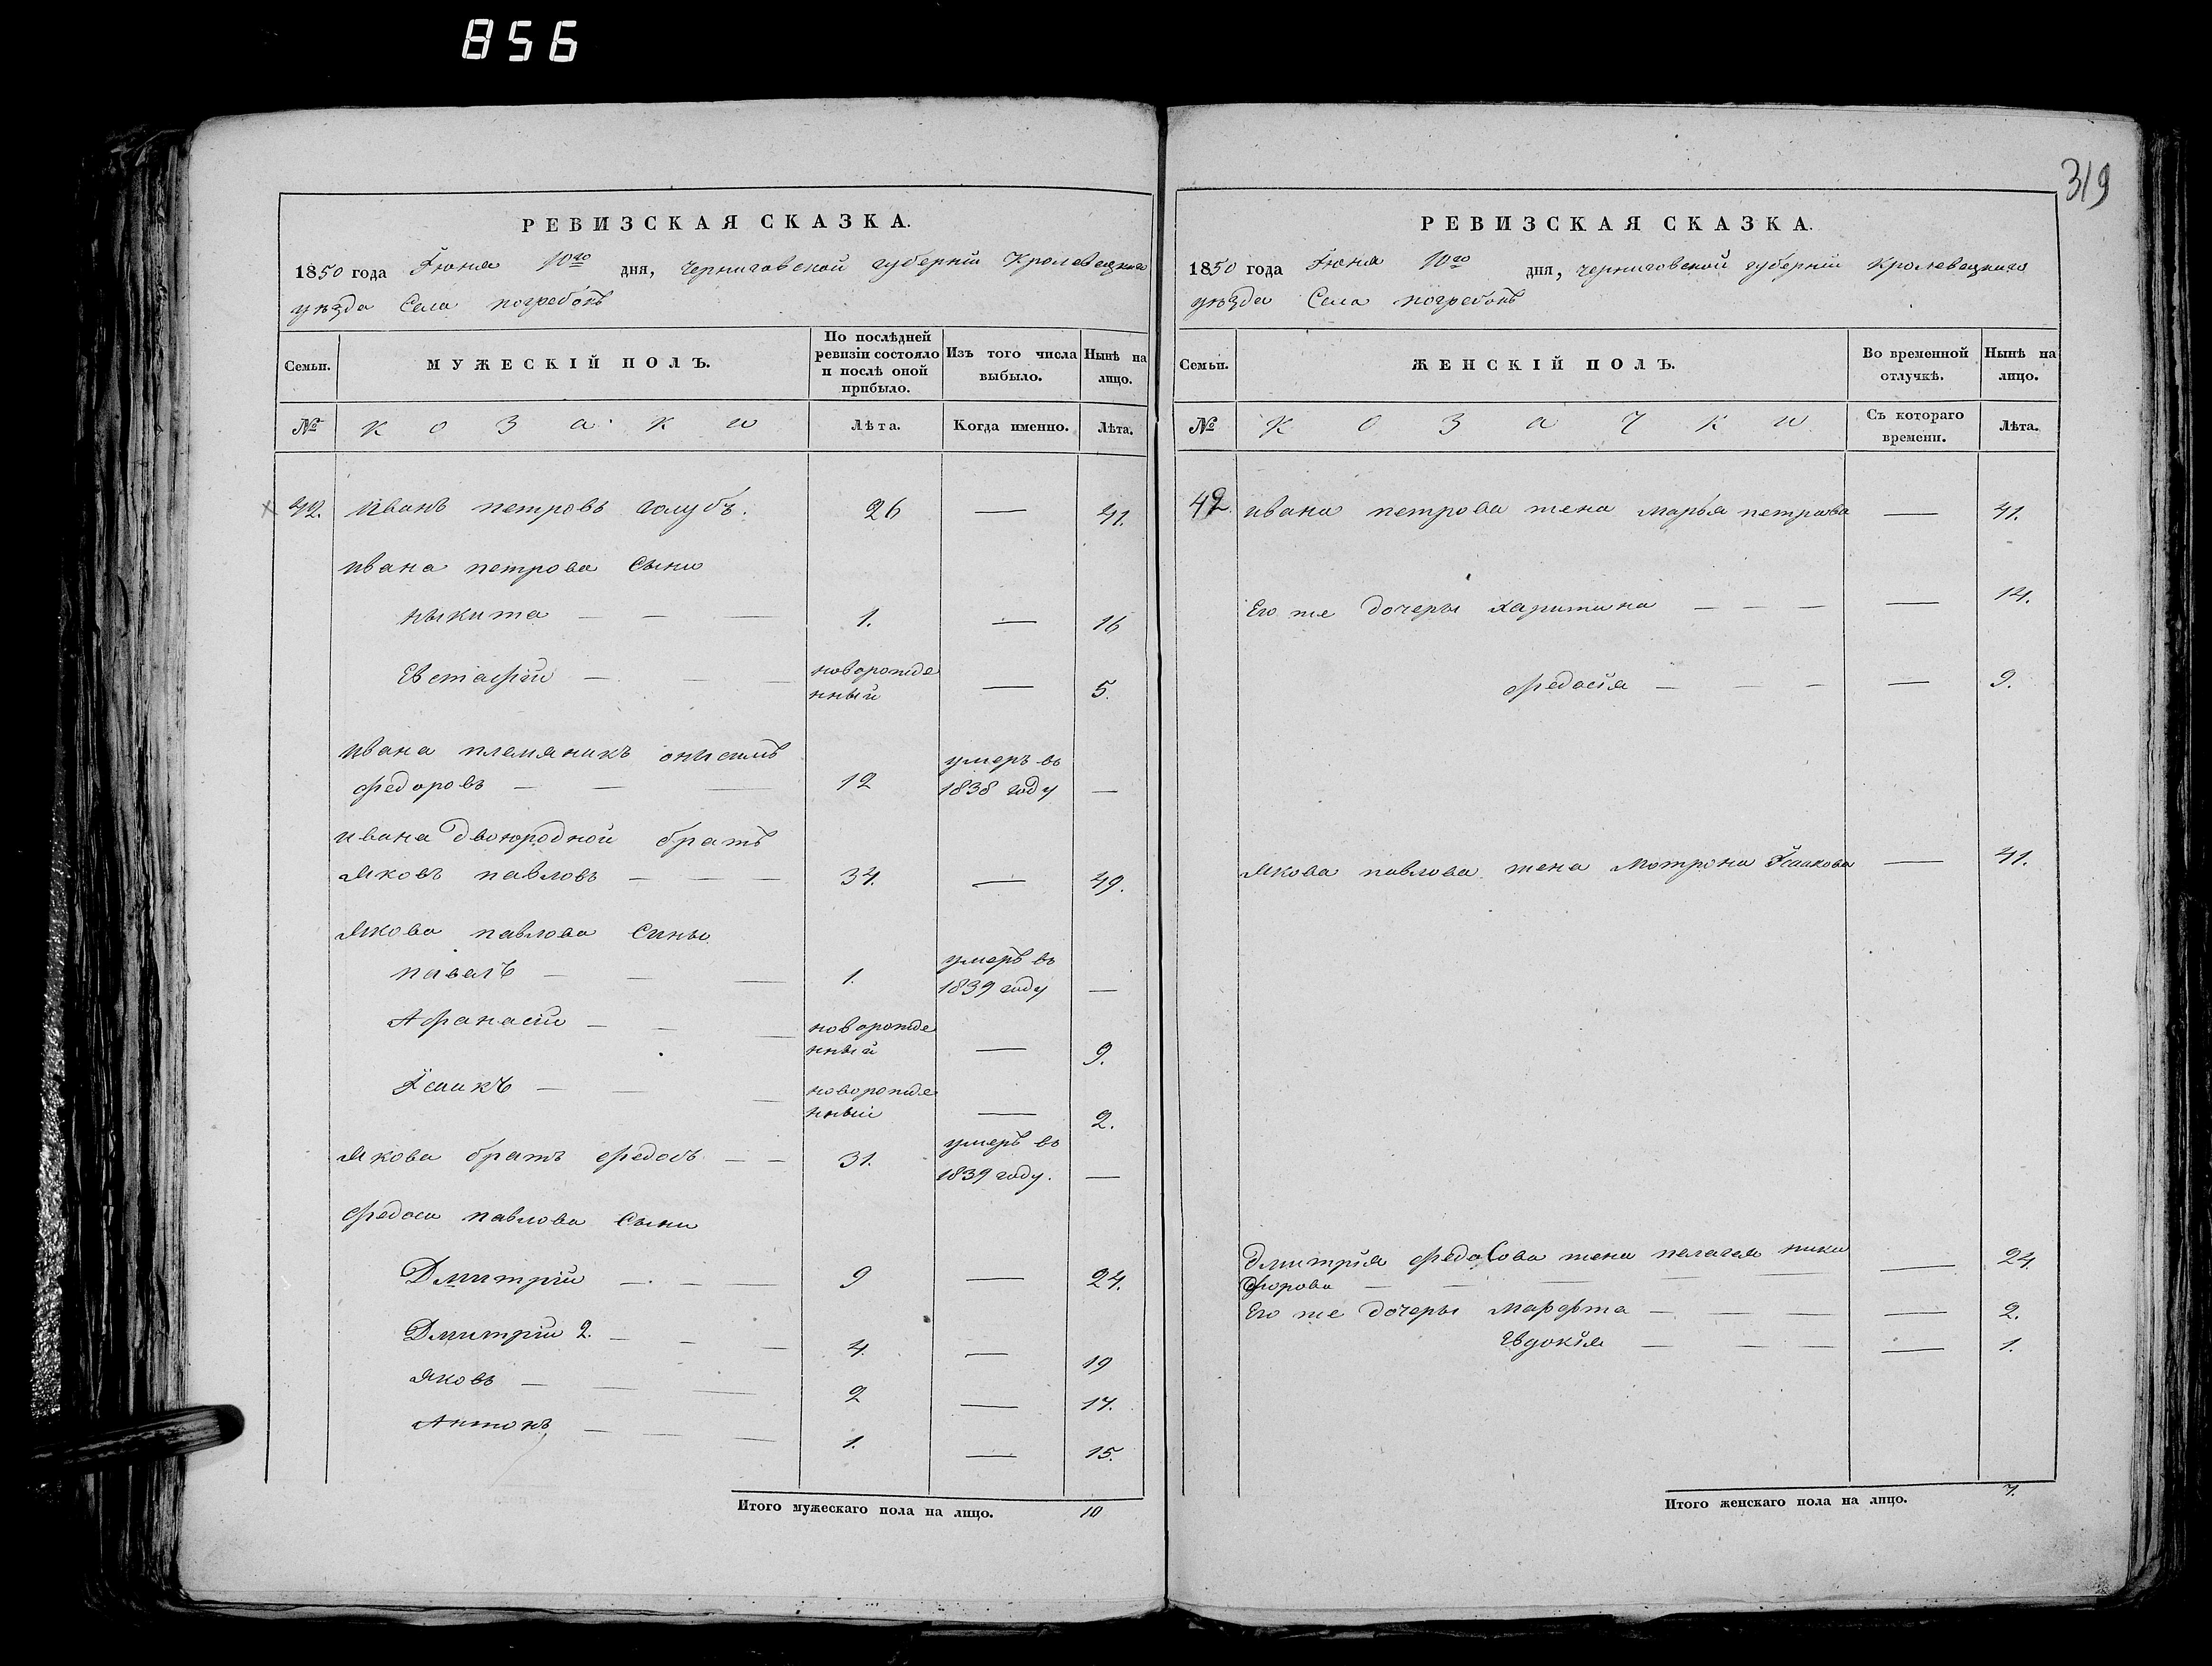 856
319
РЕВИЗСКАЯ СКАЗКА.
1850 года Іюня 10го дня, черниговской губерніи Кролевецкаго
уѣзда Села погребокъ
Семьи. МУЖЕСКІЙ ПОЛЪ. По послѣдней ревизіи состояло и послѣ оной прибыло. Изъ того числа выбыло. Нынѣ на лицо.
№ козаки Лѣта. Когда именно. Лѣта.
42. иванъ петровъ голубъ. 26 — 41.
ивана петрова сыни
ныкита — — — 1. — 16
Евстафій — — — новорожде
нный — 5.
ивана племяникъ онисимъ
федоровъ — — — 12 умеръ въ
1838 году —
ивана двоюродной братъ
яковъ павловъ — — — 34. — 49.
якова павлова сины
павелъ — — — 1. умеръ въ
1839 году —
Афанасій — — — новорожде
нный — 9.
Ісаакъ — — — новорожде
нный — 2.
якова братъ федосъ — — 31. умеръ въ
1839 году. —
федоса павлова сыни
Дмитрій — — — 9 — 24.
Дмитрій 2. — — — 4. — 19
яковъ — — — 2 — 17.
Антонъ — — — 1. — 15.
Итого мужескаго пола на лицо. 10
РЕВИЗСКАЯ СКАЗКА.
1850 года Іюня 10го дня, черниговской губерніи Кролевецкаго
уѣзда Села погребокъ
Семьи. ЖЕНСКІЙ ПОЛЪ. Во временной отлучкѣ. Нынѣ на лицо.
№ козачки Съ котораго времени. Лѣта.
42 ивана петрова жена марья петрова — 41.
Его же дочеры харитина — — — — 14.
федосія — — — — 9.
якова павлова жена мотрона Ісаакова — 41.
Дмитрія федосова жена пелагея ники
форова — — — — — 24
Его же дочеры марфта — — — — 2.
Евдокія — — — — 1.
Итого женскаго пола на лицо. 7.